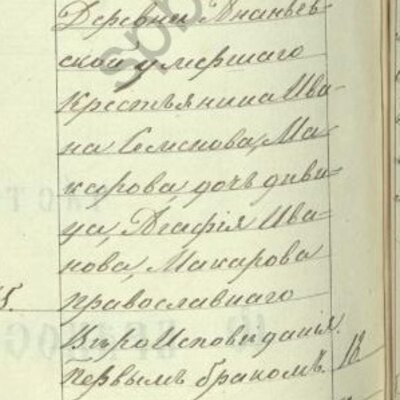 Деревни Ананьев-
ской умершаго
Крестьянина Ива-
на Семенова, Ма-
карова дочь деви-
ца, Агафія Ива-
нова, Макарова
5. православнаго
Вѣроисповеданія.
первымъ бракомъ. 18